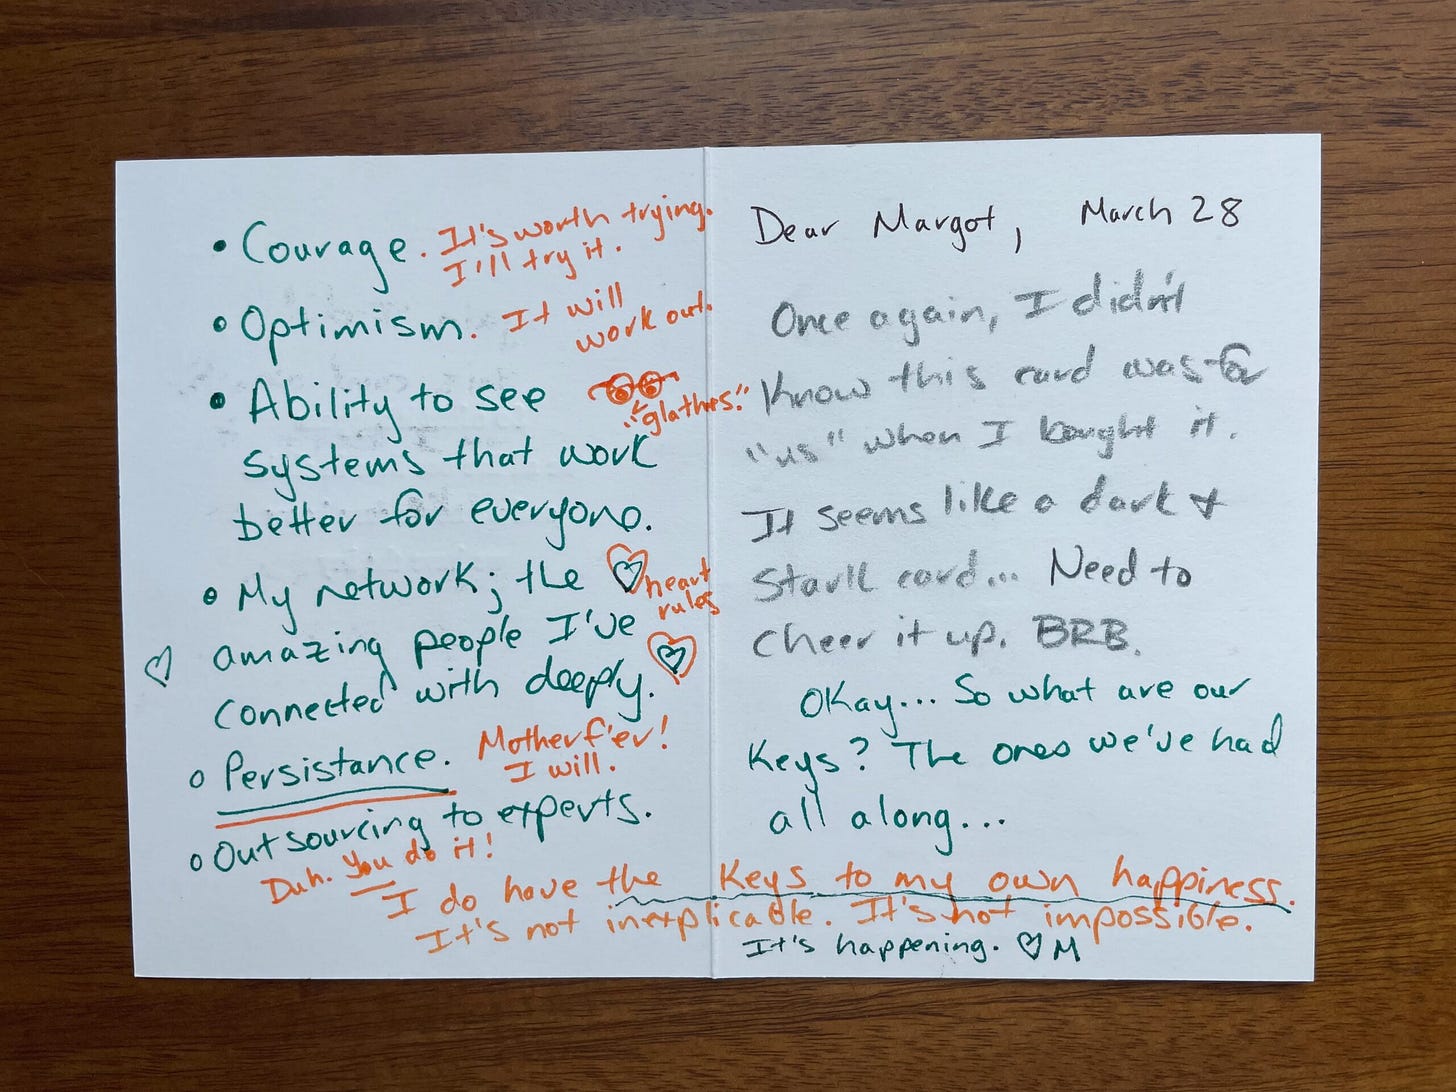 Dear Margot, March 28
Once again, I didn't
Know this card was for
"us" when I bought it.
It seems like a dark &
Stark card... Need to
cheer it up. BRB.
Okay... So what are our
Keys? The ones we've had
all along...
• Courage. It's worth trying.
I'll try it.
• Optimism. It will
work out.
• Ability to see
"glathes."
systems that work
better for everyone.
• My network; the
heart
rules
amazing people I've
connected with deeply.
• Persistance. Motherf'er!
I will.
• Outsourcing to experts.
Duh. You do it!
I do have the Keys to my own happiness.
It's not inexplicable. It's not impossible.
It's happening. ♡ M